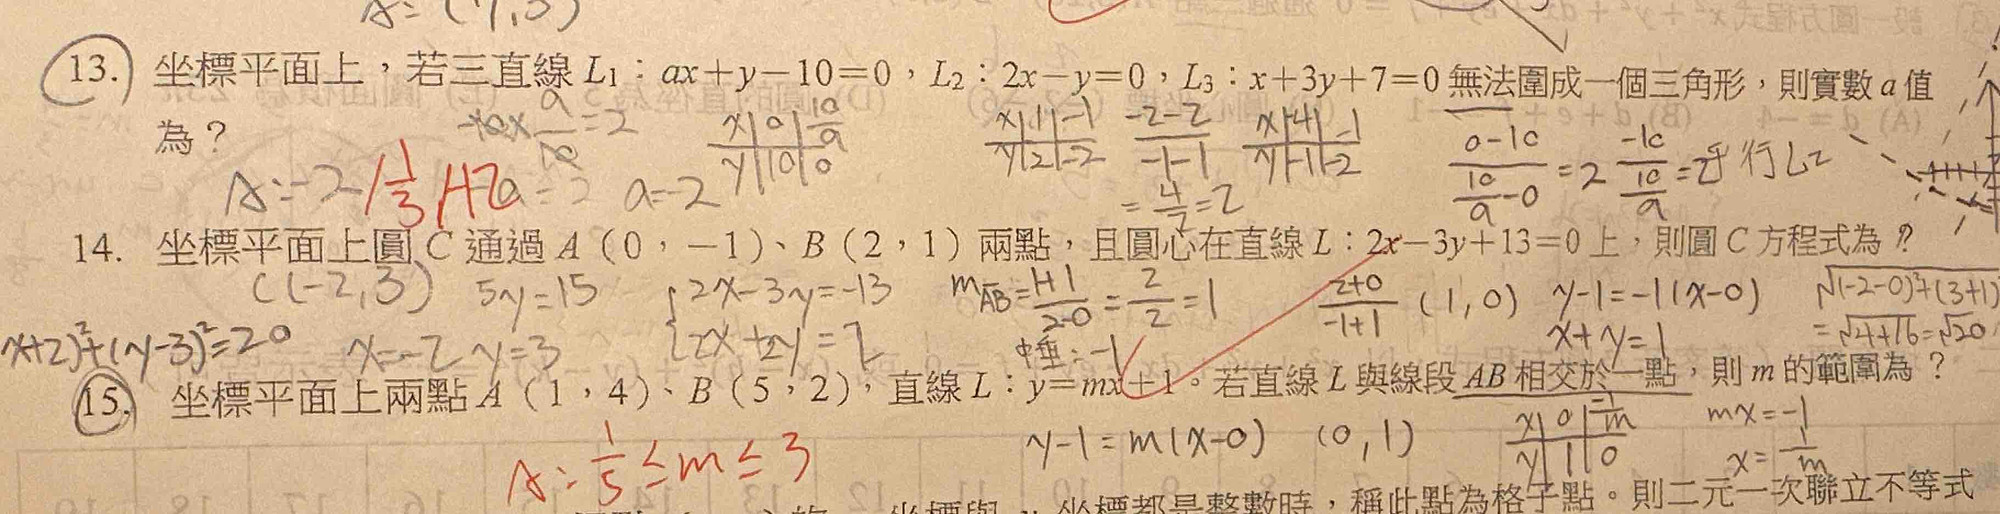 A:(1,3)
13. 坐標平面上，若三直線 L₁：ax+y−10=0，L₂：2x−y=0，L₃：x+3y+7=0 無法圍成一個三角形，則實數 a 值
為？
x 0 10/a
y 10 0
x 1 -1
y 2 -2
-2-2/-1-1
= 4/2=2
x -4 -1
y -1 -2
0-10/(10/a-0) =2
-10/(10/a) =2
平行L2
A:-2, 1/3, 14
a=-2
14. 坐標平面上圓 C 通過 A（0，−1）、B（2，1）兩點，且圓心在直線 L：2x−3y+13=0 上，則圓 C 方程式為？
C(-2,3) 5y=15 {2x-3y=-13 mAB=1+1/2-0=2/2=1 2+0/-1+1 (1,0) y-1=-1(x-0) √(-2-0)²+(3+1)
(x+2)²+(y-3)²=20 x=-2 y=3 {2x+2y=2 中垂:-1 x+y=1 =√4+16=√20
15. 坐標平面上兩點 A（1，4）、B（5，2），直線 L：y=mx+1。若直線 L 與線段 AB 相交於一點，則 m 的範圍為？
A: 1/5≤m≤3 y-1=m(x-0) (0,1)
x 0 -1/m
y 1 0
mx=-1
x=-1/m
坐標與 y 坐標都是整數時，稱此點為格子點。則二元一次聯立不等式